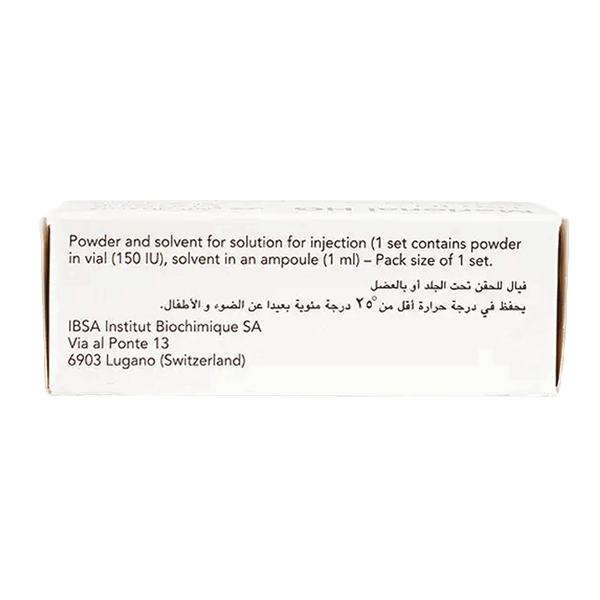 Merional HG
Powder and solvent for solution for injection (1 set contains powder
in vial (150 IU), solvent in an ampoule (1 ml) – Pack size of 1 set.
فيال للحقن تحت الجلد أو بالعضل
يحفظ في درجة حرارة أقل من ٢٥° درجة مئوية بعيدا عن الضوء و الأطفال.
IBSA Institut Biochimique SA
Via al Ponte 13
6903 Lugano (Switzerland)